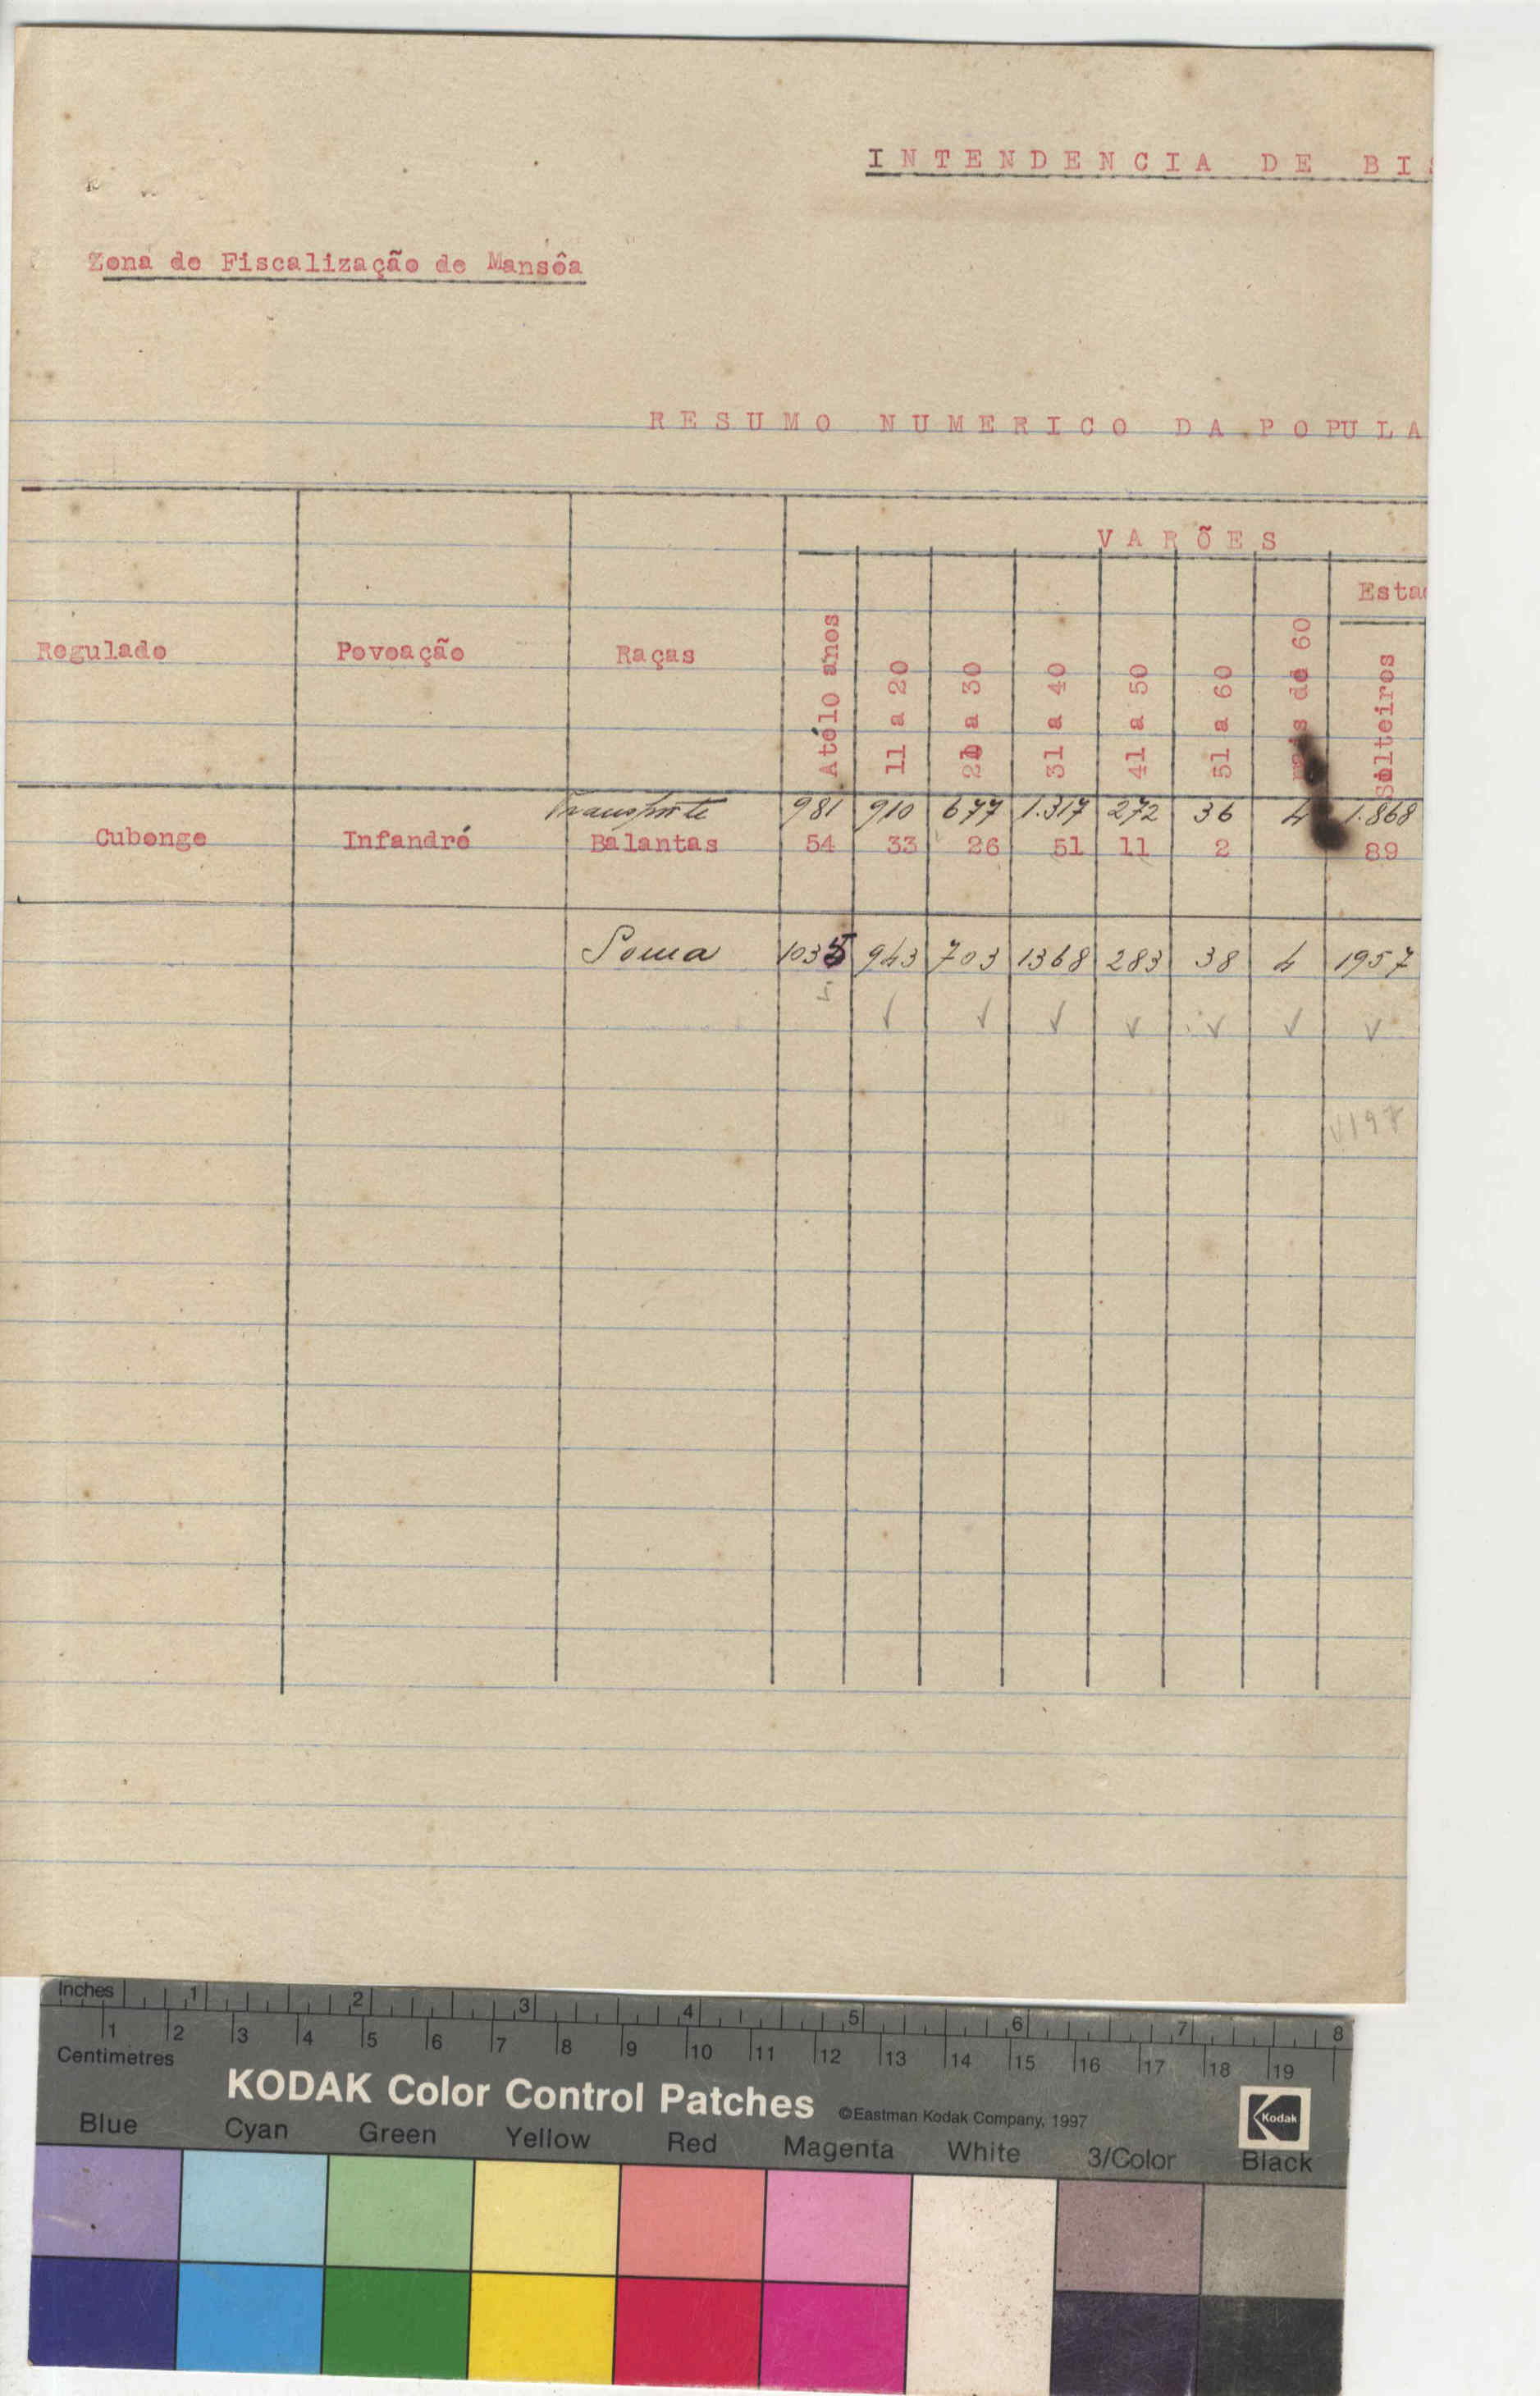 INTENDENCIA DE BI
Zona de Fiscalização de Mansôa
RESUMO NUMERICO DA POPULA
VARÕES
Esta
Regulado Povoação Raças Até10 anos 11 a 20 a 30 31 a 40 41 a 50 51 a 60 de 60 Solteiros
Transporte 981 910 677 1.317 272 36 4 1.868
Cubonge Infandré Balantas 54 33 26 51 11 2 89
Soma 1035 943 703 1368 283 38 4 1957
Inches 1 2 3 4 5 6 7 8
1 2 3 4 5 6 7 8 9 10 11 12 13 14 15 16 17 18 19
Centimetres
KODAK Color Control Patches ©Eastman Kodak Company, 1997 Kodak
Blue Cyan Green Yellow Red Magenta White 3/Color Black